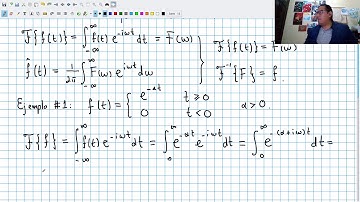 F{f(t)} = ∫_{-∞}^{∞} f(t) e^{-iωt} dt = F(ω)
F{f(t)} = F(ω)
f̂(t) = 1/2π ∫_{-∞}^{∞} F(ω) e^{iωt} dω
F^{-1}{F} = f.
Ejemplo #1: f(t) = { e^{-αt} t ≥ 0
0 t < 0 α > 0.
F{f} = ∫_{-∞}^{∞} f(t) e^{-iωt} dt = ∫_{0}^{∞} e^{-αt} e^{-iωt} dt = ∫_{0}^{∞} e^{-(α+iω)t} dt =